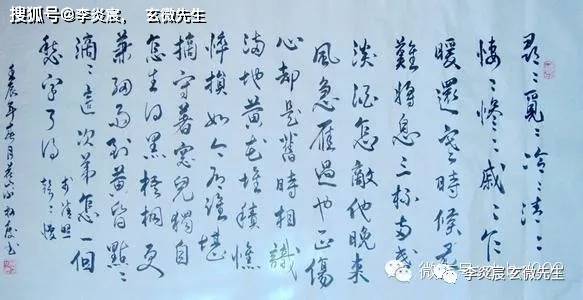 搜狐号@李炎宸， 玄微先生
尋〻覓〻冷〻清〻
悽〻惨〻戚〻乍
暖還寒時候最
難將息三杯両盞
淡酒怎敵他晚来
風急雁過也正傷
心却是舊時相識
满地黄花堆積憔
悴損如今有誰堪
摘守著窓兒獨自
怎生得黑梧桐更
兼細雨到黄昏點〻
滴〻這次第怎一個
愁字了得
李清照
聲〻慢
壬辰年
李炎宸玄微先生